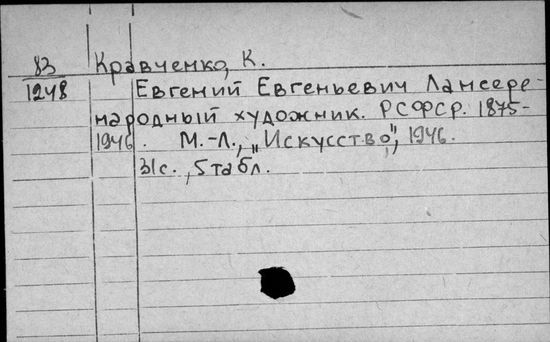 83 Кравченко, К.
1248 Евгений Евгеньевич Лансере-
народный художник. РСФСР. 1875-
1946. М.-Л., „Искусство", 1946.
31с., 5табл.